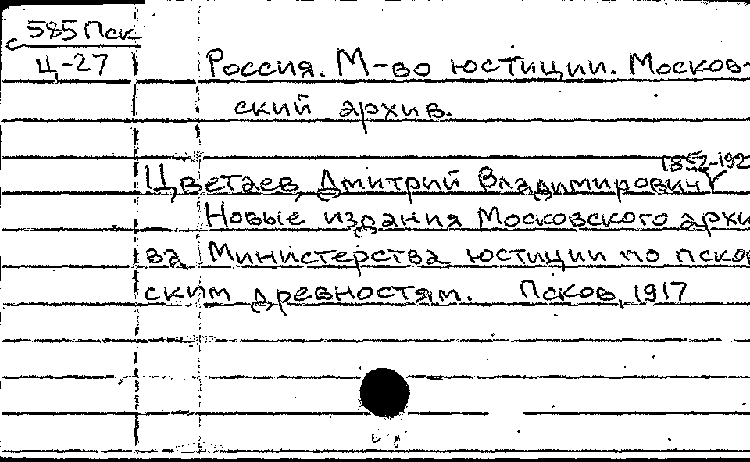 с 585 Пск
Ц-27
Россия. М-во юстиции. Москов-
ский архив.
1852-192
Цветаев, Дмитрий Владимирович
Новые издания Московского архи
ва Министерства юстиции по псков
ским древностям. Псков, 1917